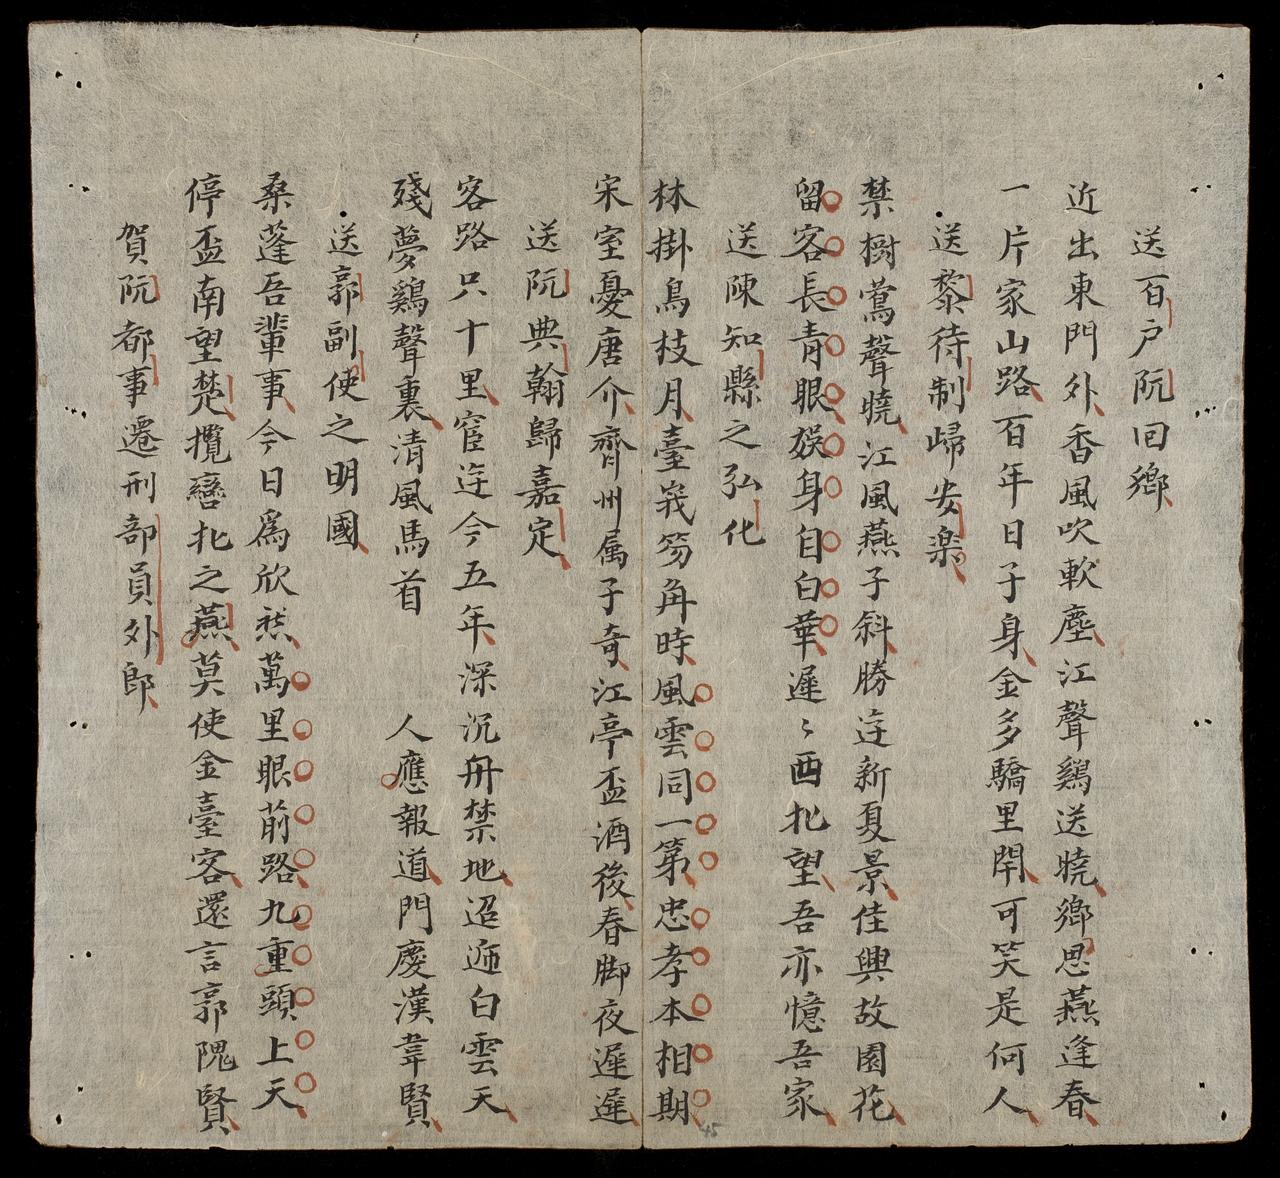 送百户阮回鄉
近出東門外香風吹軟塵江聲鷄送曉鄉思燕逢春
一片家山路百年日子身金多驕里閈可笑是何人
送黎待制歸安樂
禁樹鶯聲曉江風燕子斜勝迬新夏景佳興故園花
留客長青眼娱身自白華遲〻西北望吾亦憶吾家
送陳知縣之弘化
林掛鳥枝月臺峩豸角時風雲同一第忠孝本相期
宋室憂唐介齊州属子奇江亭盃酒後春脚夜遲遲
送阮典翰歸嘉定
客路只十里宦迬今五年深沉舟禁地迢遞白雲天
殘夢鷄聲裏清風馬首 人應報道門慶漢韋賢
送郭副使之明國
桑蓬吾輩事今日爲欣然萬里眼前路九重頭上天
停盃南望楚攬轡北之燕莫使金臺客還言郭隗賢
賀阮都事遷刑部員外郎
45